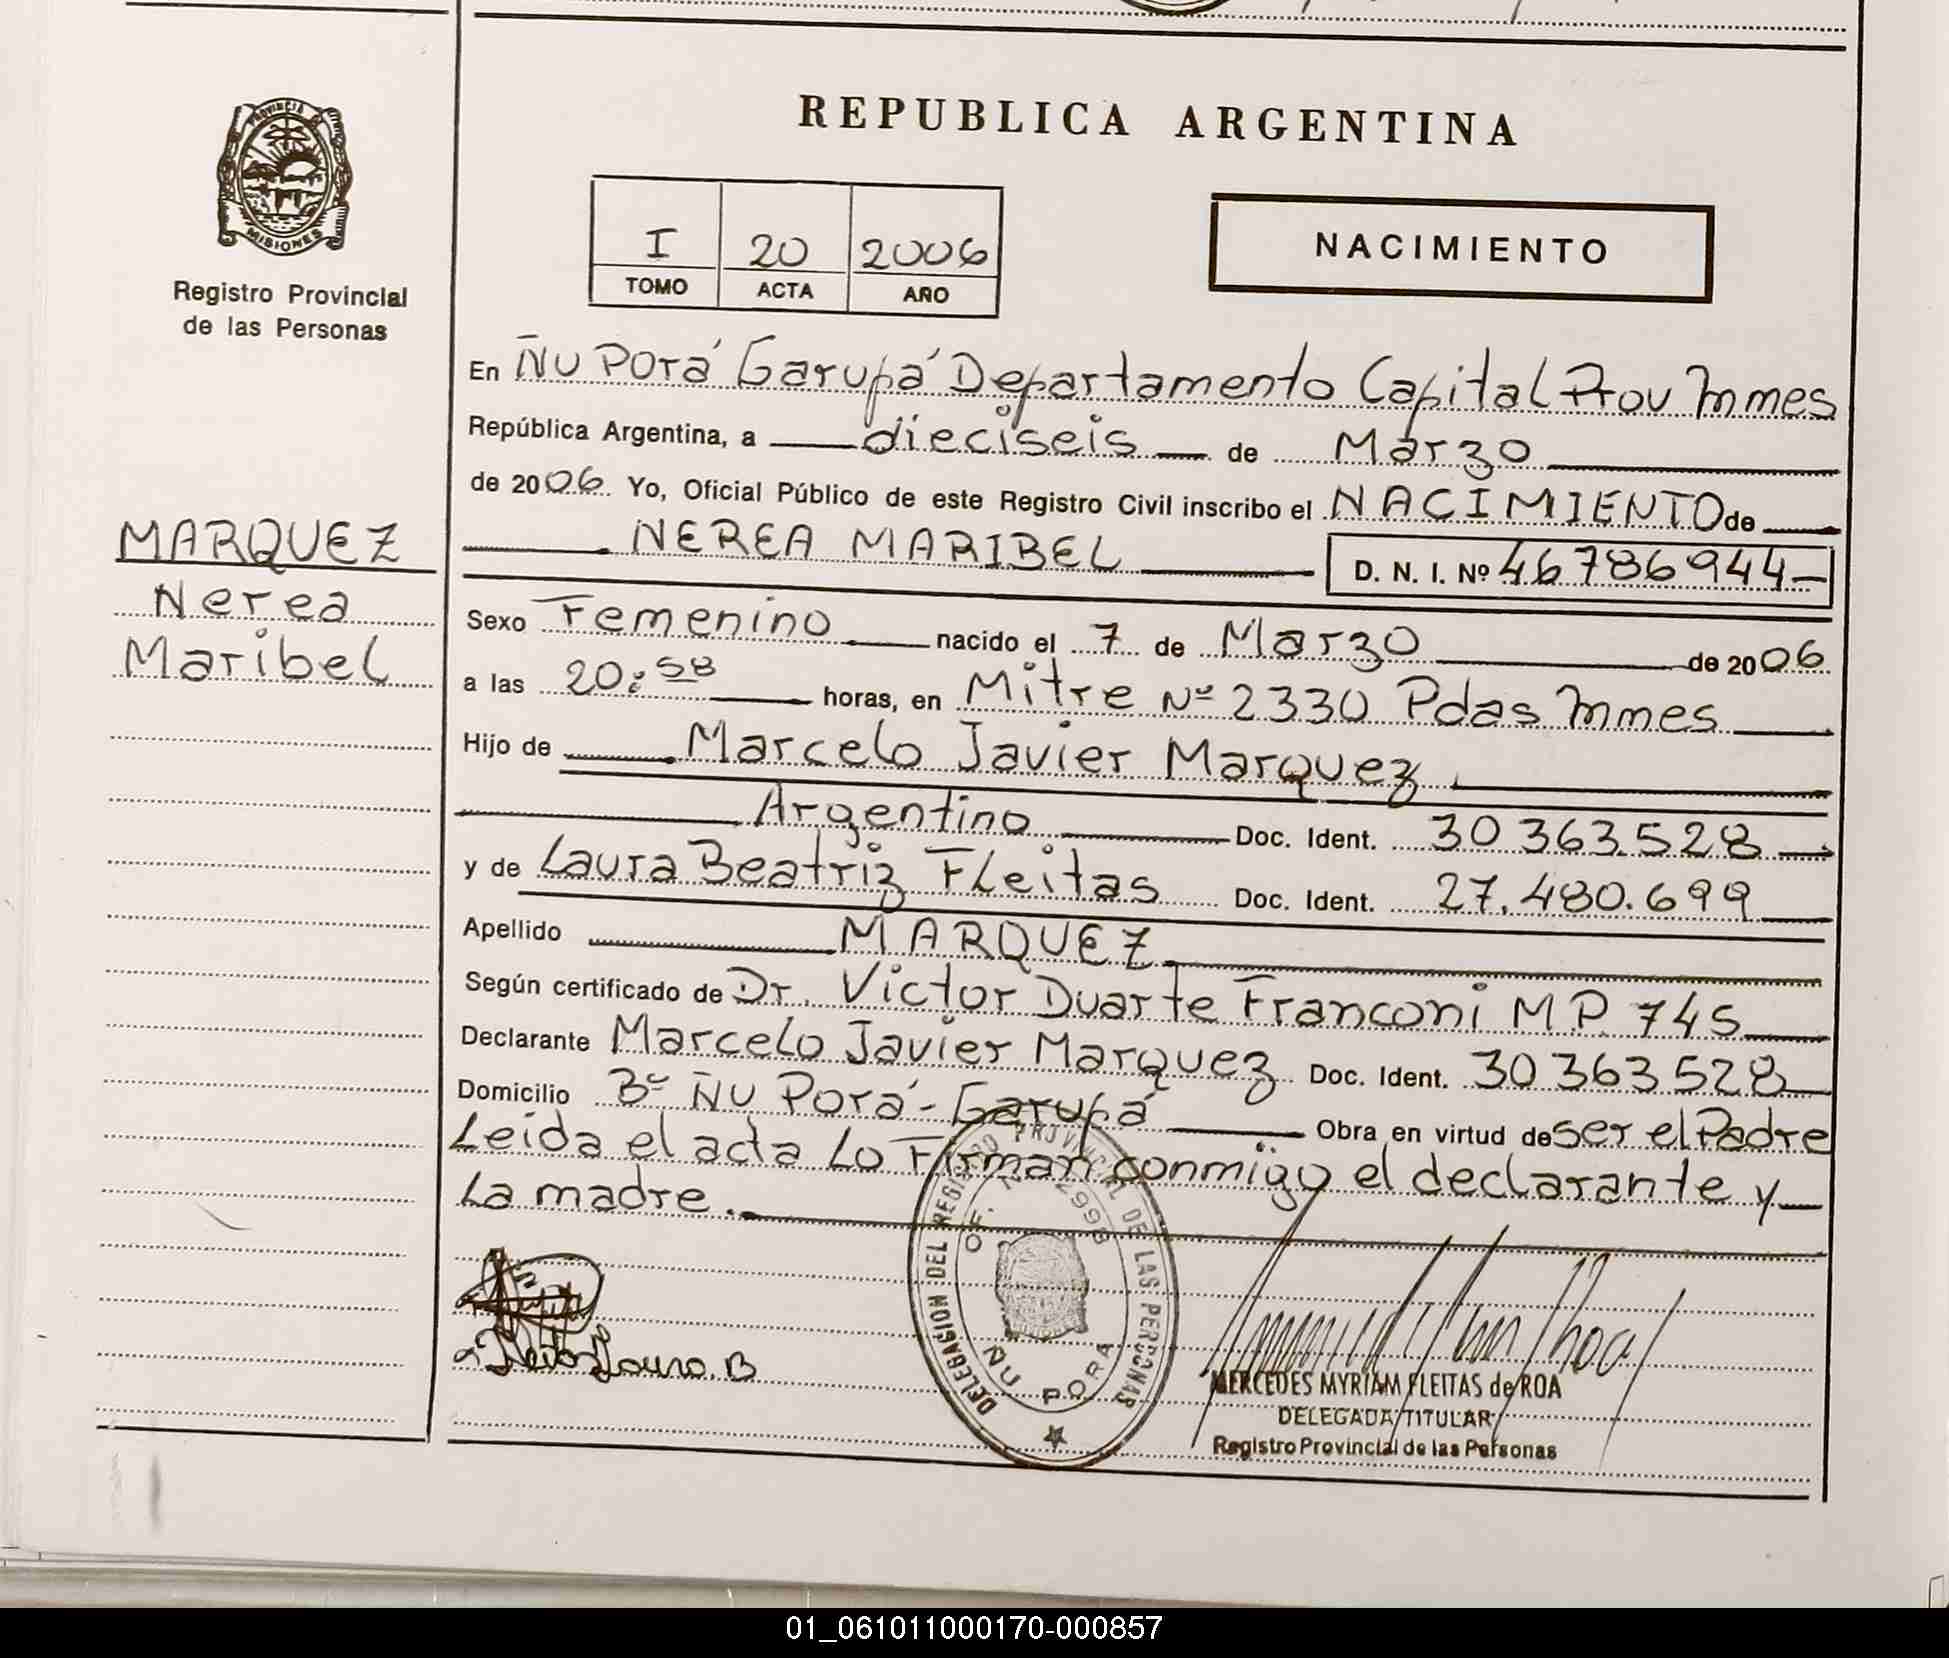 PROVINCIA
MISIONES
Registro Provincial
de las Personas
MARQUEZ
Nerea
Maribel
REPUBLICA ARGENTINA
I 20 2006
TOMO ACTA AÑO
NACIMIENTO
En Ñu Porá Garupá Departamento Capital Prov Mnes
República Argentina, a dieciseis de Marzo
de 2006. Yo, Oficial Público de este Registro Civil inscribo el NACIMIENTO de
NEREA MARIBEL D. N. I. Nº 46786944
Sexo Femenino nacido el 7 de Marzo de 2006
a las 20:58 horas, en Mitre Nº 2330 Pdas Mnes
Hijo de Marcelo Javier Marquez
Argentino Doc. Ident. 30 363.528
y de Laura Beatriz Fleitas Doc. Ident. 27.480.699
Apellido MARQUEZ
Según certificado de Dr. Victor Duarte Franconi MP. 745
Declarante Marcelo Javier Marquez Doc. Ident. 30 363 528
Domicilio Bº Ñu Porá - Garupá Obra en virtud de ser el Padre
Leida el acta Lo Firman conmigo el declarante y
La madre.
DELEGACION DEL REGISTRO PROVINCIAL DE LAS PERSONAS
ÑU PORA
Fleitas Laura. B
MERCEDES MYRIAM FLEITAS de ROA
DELEGADA TITULAR
Registro Provincial de las Personas
01_061011000170-000857